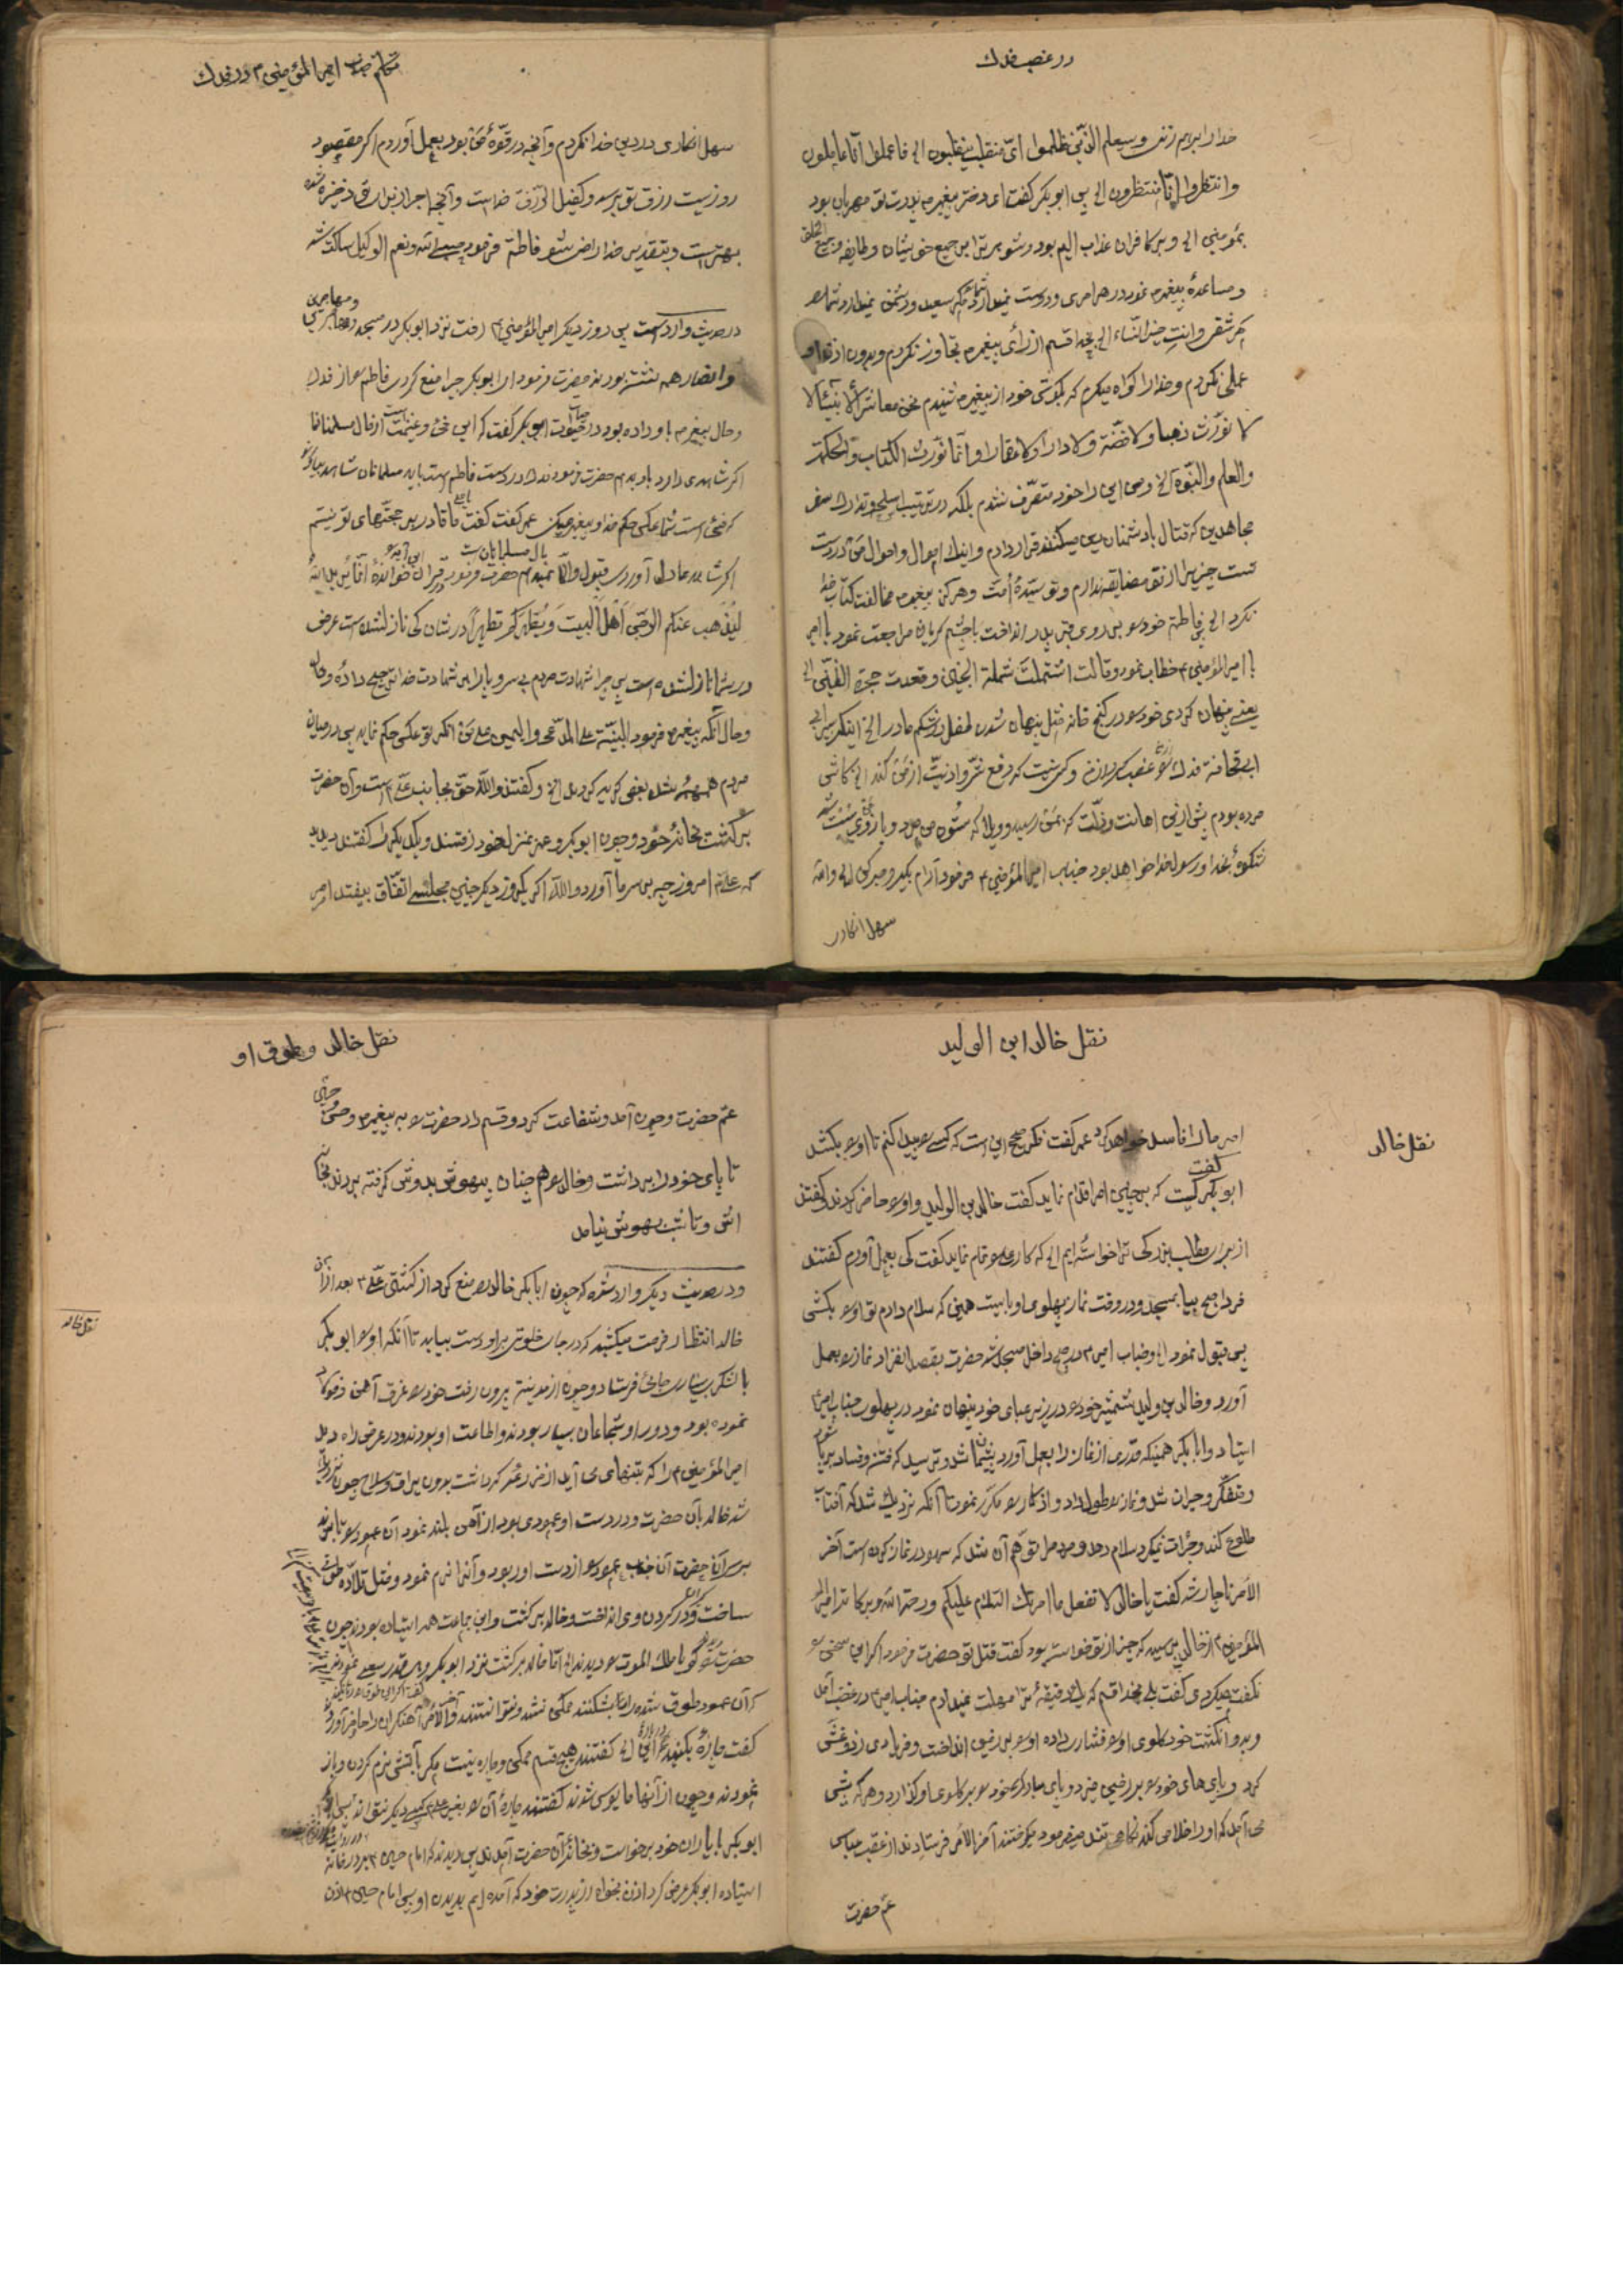 در غصب فدك
خدا را ابرام زنند وسیعلم الذین ظلموا ای منقلب ینقلبون الخ فاعملوا انا عاملون
وانتظروا انا منتظرون الخ پس ابوبکر گفت ای دختر پیغمبر م پدرت تو مهربان بود
بمؤمنین الخ وبر کافران عذاب الیم بود وشوهر ترا بر جمیع خویشان
ومساعدۀ پیغمبر م نمود در هر امری ودوست نمیدارد شما را مگر سعید ودشمن نمیدارد شما را
مگر شقی وانت خیر النساء الخ بخدا قسم از رأی پیغمبر م تجاوز نکردم وبدون اذن او
عملی نکردم وخدا را گواه میگیرم که بگوش خود از پیغمبر م شنیدم نحن معاشر الأنبیاء لا
نورث ذهبا ولا فضة ولا دارا ولا عقارا وانما نورث الکتاب والحکمة
والعلم والنبوة الخ ومن این را خود متصرف نشدم بلکه در ترتیب اسلحه وتدارك سفر
مجاهدین که قتال با دشمنان دین میکنند قرار دادم واینك اموال واحوال من در دست
تست چیزی را از تو مضایقه ندارم وتو سیدۀ امت وهرگز پیغمبر م مخالفت کتاب خدا
نکرد الخ پس فاطمه خود را بر روی قبر پدر انداخت با چشم گریان مراجعت نمود
با امیر المؤمنین ٤ خطاب نمود وقالت اشتملت شملة الجنین وقعدت حجرة الظنین الخ
یعنی پنهان کردی خود را در کنج خانه مثل پنهان شدن طفل در شکم مادر الخ اینك پسر ابی
قحافة فدك را غصب کرد از من وکسی نیست که دفع شر واذیت از من کند الخ کاش
مرده بودم پیش از این اهانت وذلت که بمن رسید وویلا که ستون من مرد وبازوی من سست شد
شکوۀ بخدا ورسول خدا خواهد بود جناب امیر المؤمنین ٤ فرمود آرام بگیر وصبر کن
سهل انکاری
تکلم جناب امیر المؤمنین ٤ در فدك
سهل انکاری در دین خدا نکردم وآنچه در قوۀ من بود بعمل آوردم اگر مقصود
روزیست رزق تو میرسد وکفیل الرزق خداست وآنچه اجر از برای تو ذخیره شده
بهتر است وبتقدیر خدا راضی شو فاطمه فرمود حسبی الله ونعم الوکیل ساکت شد
در حدیث وارد است پس روز دیگر امیر المؤمنین ٤ رفت نزد ابوبکر در مسجد ومهاجرین
وانصار همه نشسته بودند حضرت فرمود ای ابوبکر چرا منع کردی فاطمه را از فدك
وحال پیغمبر م باو داده بود در حیات ابوبکر گفت که این فی وغنیمت است از مال مسلمانان
اگر شاهدی دارد باو بدهم حضرت فرمود فدك در دست فاطمه است باید مسلمانان شاهد بیاورند
که فی است شما عکس حکم خدا وپیغمبر میکنی عمر گفت یا علی ما قادر بر حجتهای تو نیستیم
اگر شاهد عادل آوردی قبول والا مال مسلمانان است نمیدهم حضرت فرمود در قرآن این آیه را خواندۀ انما یرید الله
لیذهب عنکم الرجس أهل البیت ویطهرکم تطهیرا در شان کی نازل شده است عرض
در شما نازل شده است پس چرا شهادت مردم بی سر وپا را بر شهادت خدا ترجیح دادۀ
وحال آنکه پیغمبر م فرمود البینة علی المدعی والیمین علی من انکر تو عکس حکم نمودی پس در میان
مردم همهمه شد بعضی گریه کردند الخ وگفتند والله حق بجانب علی ٤ است وآن حضرت
برگشت بخانۀ خود وچون ابوبکر وعمر بمنزل خود رفتند وبیکدیگر گفتند دیدید
که علی ٤ امروز چه بر سر ما آورد والله اگر یکروز دیگر چنین مجلسی اتفاق بیفتد امر
نقل خالد ابن الولید
نقل خالد
امر ما را فاسد خواهد کرد عمر گفت فکر صحیح این است که کسی را پیدا کنم تا او را بکشد
ابوبکر گفت کیست که بر چنین امر اقدام نماید گفت خالد بن الولید واو را حاضر کردند وگفتند
از برای مطلب بزرگی ترا خواسته ایم الخ که کاری را تمام نماید گفت کی بعمل آورم گفتند
فردا صبح بیا بمسجد ودر وقت نماز پهلوی او بایست همینکه سلام دادم تو او را بکشی
پس قبول نمود الخ وجناب امیر ٤ در صبح داخل مسجد شد حضرت بقصد انفراد نماز را بعمل
آورد وخالد بن ولید شمشیر خود را در زیر عبای خود پنهان نمود در پهلوی جناب امیر ٤
ایستاد وابابکر همینکه قدری از نماز را بعمل آورد پشیمان شد وترسید که فتنه وفساد برپا شود
ومتفکر وحیران شد ونماز را طول داد واذکار را مکرر نمود تا آنکه نزدیك شد که آفتاب
طلوع کند وجرات نمیکرد سلام دهد ومردم را توهم آن شد که سهو در نماز کرده است آخر
الأمر ناچار شد گفت یا خالد لا تفعل ما امرتك السلام علیکم ورحمة الله وبرکاته امیر
المؤمنین ٤ از خالد پرسید که چیز از تو خواسته بود گفت قتل تو حضرت فرمود اگر این سخن را
نگفت میکردی گفت بلی بخدا قسم که یك دقیقۀ ترا مهلت نمیدادم جناب امیر ٤ در غضب آمد
وبدو انگشت خود گلوی او را فشاری داده او را بر زمین انداخت وفریادی زد وغش
کرد وپای های خود را بر زمین میزد وپای مبارك خود را بر گلوی او گذارد وهر که پیش
می آمد که او را خلاص کند نگاهی تند میفرمود میگریختند آخر الامر فرستادند از عقب عباس
عم حضرت
نقل خالد وطوق او
عم حضرت وچون آمد وشفاعت کرد وقسم داد حضرت را به پیغمبر م وحسنین
تا پای خود را برداشت وخالد را همچنان بیهوش بدوش گرفته بردند بخانه
اش وتا شب بهوش نیامد
ودر حدیث دیگر وارد شده که چون ابابکر خالد را منع کرد از کشتن علی ٤ بعد از آن
خالد انتظار فرصت میکشید که در جای خلوتی بر او دست بیابد تا آنکه او را ابوبکر
با لشکر بسیاری جائی فرستاد وچون از مدینه بیرون رفت خود را غرق آهن وفولاد
نموده بود ودور او شجاعان بسیار بودند واطاعت او بودند ودر عرض راه دید
امیر المؤمنین ٤ را که بتنهای می آید از مزرعۀ که داشت بدون یراق وسلاح چون نزدیك
شد خالد بآن حضرت ودر دست او عمودی بود از آهن بلند نمود آن عمود را تا بزند
بر سر آن حضرت آنجناب عمود را از دست او ربود وآنرا نرم نمود ومثل قلاده طوقی
ساخت ودر گردن وی انداخت وخالد برگشت واین جماعت همه ایستاده بودند چون
حضرت را دیدند گویا ملك الموت را دیدند الخ اما خالد برگشت نزد ابوبکر وهر قدر سعی نمودند
که آن عمود طوق شده را بشکنند ممکن نشد ونتوانستند آخر الامر آهنگران را حاضر آورد
گفت چارۀ بکنید در بارۀ این الخ گفتند هیچ قسم ممکن وچاره نیست مگر بآتش نرم کردن وباز
نمودند وچون از آنها مایوس شدند گفتند چارۀ آن را بغیر علی کسی دیگر نتواند پس
ابوبکر با یاران خود برخواست وبخانۀ آن حضرت آمدند پس دیدند که امام حسن ٤ بر در خانه
ایستاده ابوبکر عرض کرد اذن بخواه از پدرت خود که آمده ایم بدیدن او پس امام حسن ٤ اذن
نقل خالد